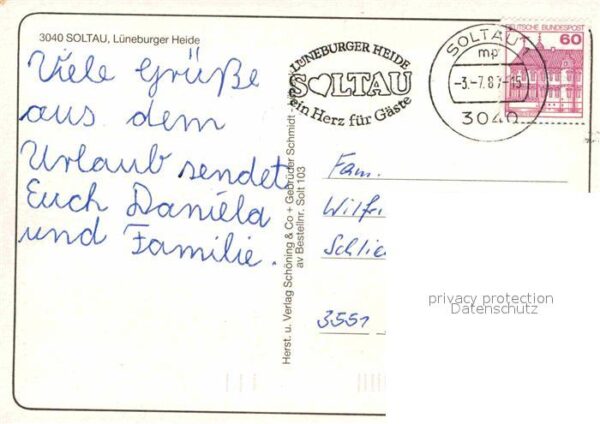 3040 SOLTAU, Lüneburger Heide
Viele Grüße
aus dem
Urlaub sendet
Euch Daniela
und Familie.
Herst. u. Verlag Schöning & Co + Gebrüder Schmidt
av Bestellnr. Solt 103
LÜNEBURGER HEIDE
SOLTAU
ein Herz für Gäste
SOLTAU 1
mp
-3.-7.87-15
3040
DEUTSCHE BUNDESPOST
60
Fam.
Wilfri
Schlie
3551
privacy protection
Datenschutz